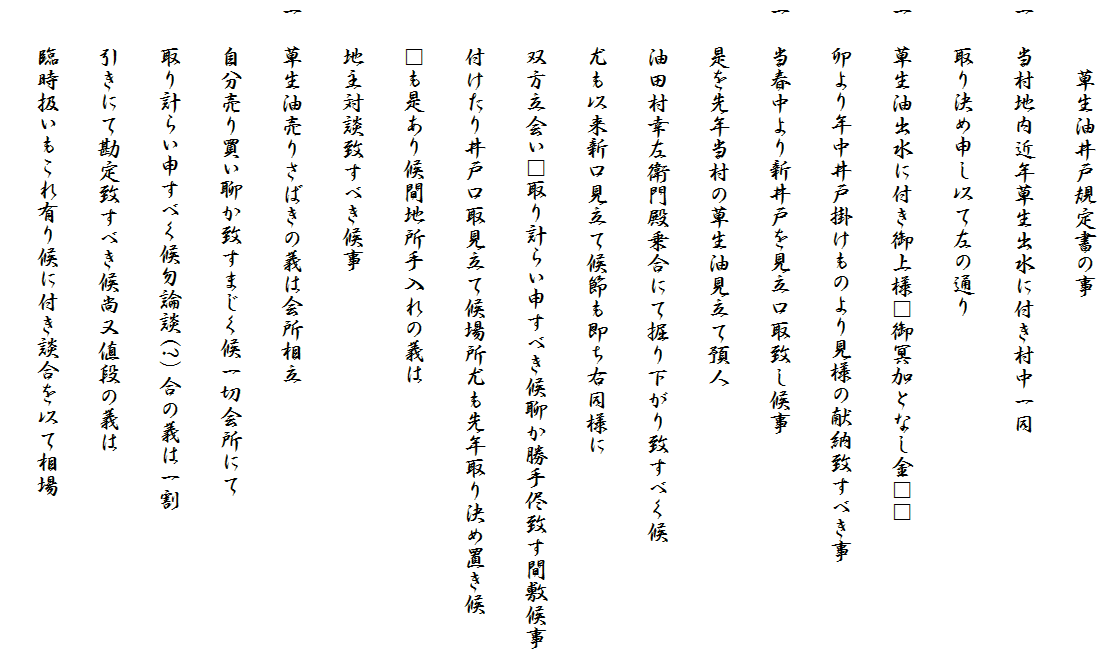 草生油井戸規定書の事
一 当村地内近年草生出水に付き村中一同
取り決め申し以て左の通り
一 草生油出水に付き御上様□御冥加となし金□□
卯より年中井戸掛けものより見様の献納致すべき事
一 当春中より新井戸を見立口取致し候事
是を先年当村の草生油見立て預人
油田村幸左衛門殿乗合にて掘り下がり致すべく候
尤も以来新口見立て候節も即ち右同様に
双方立会い□取り計らい申すべき候聊か勝手侭致す間敷候事
付けたり井戸口取見立て候場所尤も先年取り決め置き候
□も是あり候間地所手入れの義は
地主対談致すべき候事
一 草生油売りさばきの義は会所相立
自分売り買い聊か致すまじく候一切会所にて
取り計らい申すべく候勿論談(?)合の義は一割
引きにて勘定致すべき候尚又値段の義は
臨時扱いもこれ有り候に付き談合を以て相場